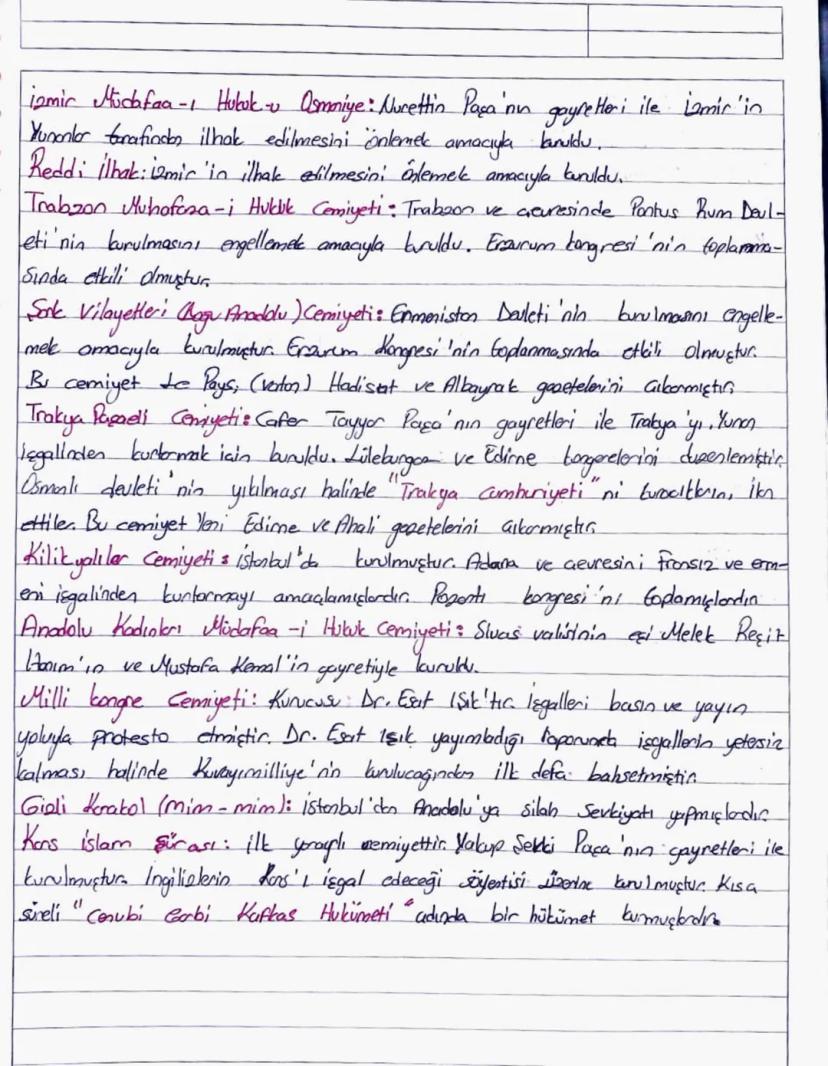 İzmir Müdafaa-ı Hukuk-u Osmaniye: Nurettin Paşa'nın gayretleri ile İzmir'in
Yunanlar tarafından ilhak edilmesini önlemek amacıyla kuruldu.
Reddi İlhak: İzmir'in ilhak edilmesini önlemek amacıyla kuruldu.
Trabzon Muhafaza-i Hukuk Cemiyeti: Trabzon ve çevresinde Pontus Rum Devl-
eti'nin kurulmasını engellemek amacıyla kuruldu. Erzurum kongresi'nin toplanma-
sında etkili olmuştur.
Şark Vilayetleri (Doğu Anadolu) Cemiyeti: Ermenistan Devleti'nin kurulmasını engelle-
mek amacıyla kurulmuştur. Erzurum Kongresi'nin toplanmasında etkili olmuştur.
Bu cemiyet Le Pays, (vatan) Hadisat ve Albayrak gazetelerini çıkarmıştır.
Trakya Paşaeli Cemiyeti: Cafer Tayyar Paşa'nın gayretleri ile Trakya'yı, Yunan
işgalinden kurtarmak için kuruldu. Lüleburgaz ve Edirne kongrelerini düzenlemiştir.
Osmanlı devleti'nin yıkılması halinde "Trakya Cumhuriyeti"ni kuracakların, ilan
ettiler. Bu cemiyet Yeni Edirne ve Ahali gazetelerini çıkarmıştır.
Kilikyalılar Cemiyeti: İstanbul'da kurulmuştur. Adana ve çevresini Fransız ve erm-
eni işgalinden kurtarmayı amaçlamışlardır. Pozantı kongresi'ni toplamışlardır.
Anadolu Kadınları Müdafaa-i Hukuk Cemiyeti: Sivas valisinin eşi Melek Reşit
Hanım'ın ve Mustafa Kemal'in gayretiyle kuruldu.
Milli kongre Cemiyeti: Kurucusu Dr. Esat Işık'tır. İşgalleri basın ve yayın
yoluyla protesto etmiştir. Dr. Esat Işık yayımladığı raporunda işgallerin yetersiz
kalması halinde Kuvayımilliye'nin kurulucağından ilk defa bahsetmiştir.
Gizli Karakol (mim-mim): İstanbul'dan Anadolu'ya silah sevkiyatı yapmışlardır.
Kars İslam Şûrası: ilk yararlı cemiyettir. Yakup Şevki Paşa'nın gayretleri ile
kurulmuştur. İngilizlerin Kars'ı işgal edeceği söylentisi üzerine kurulmuştur. Kısa
süreli "Cenubi Garbi Kafkas Hukümeti" adında bir hükümet kurmuşlardır.